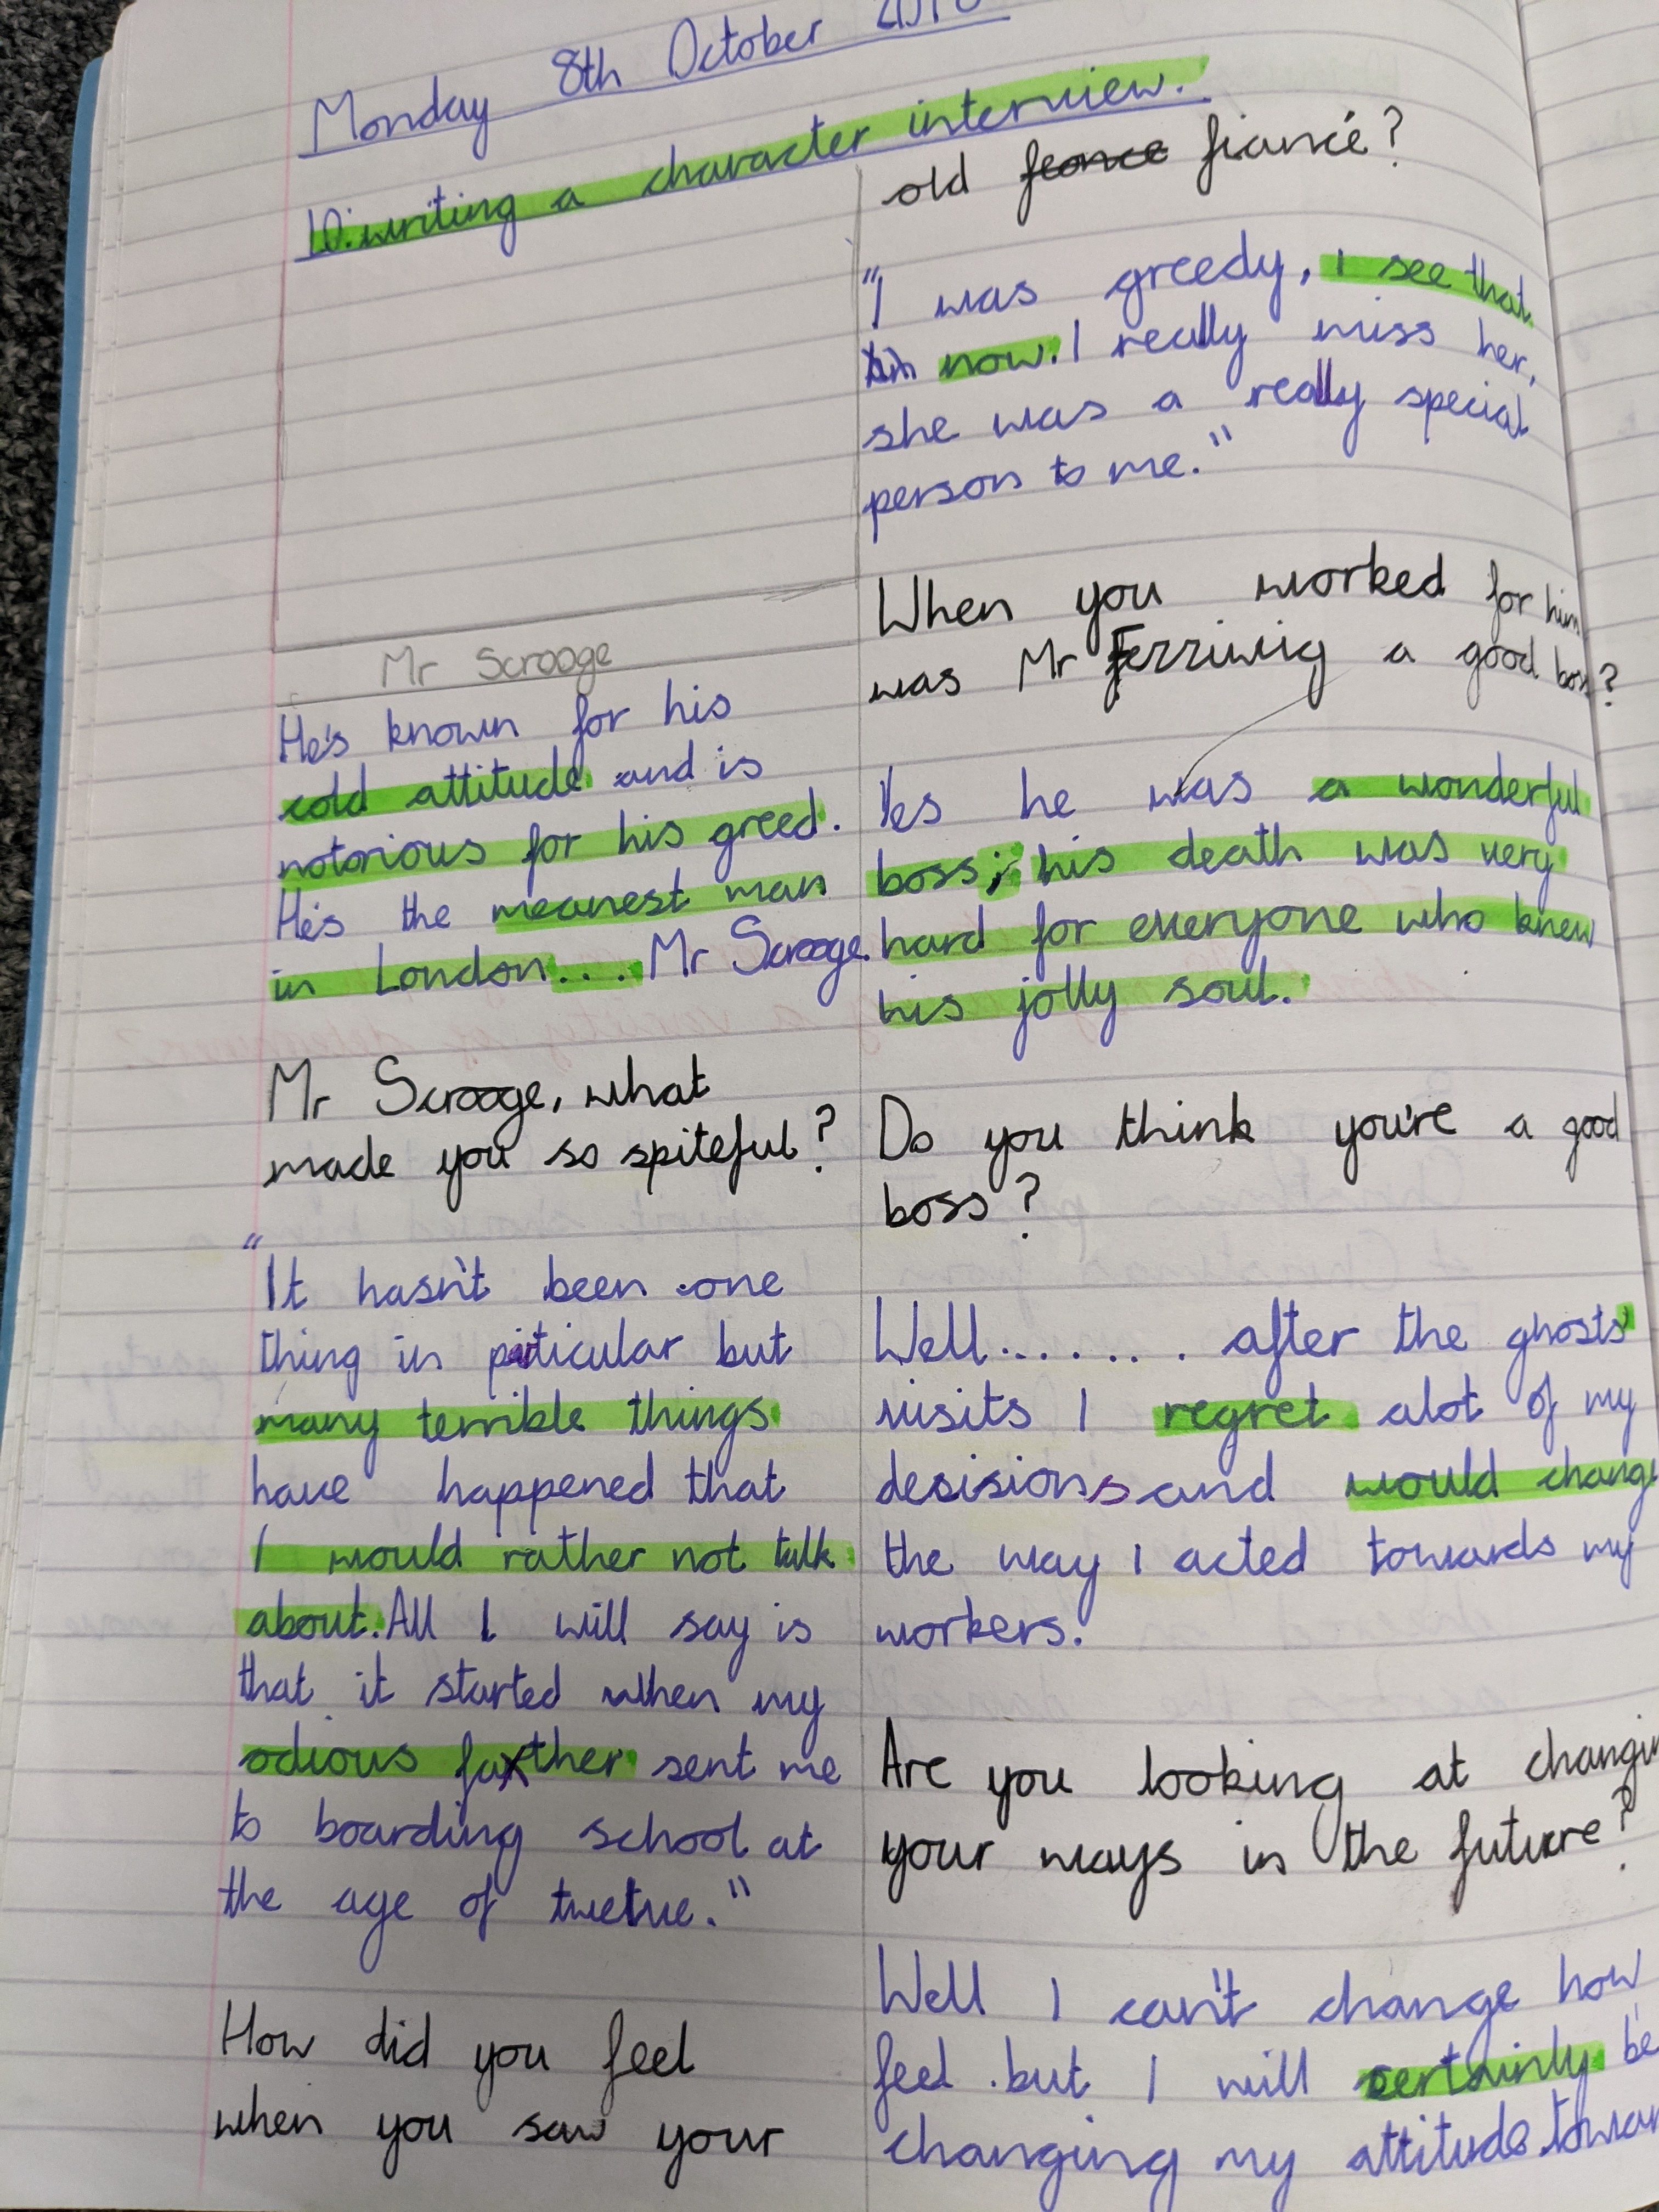 Monday 8th October
LO: writing a character interview.
Mr Scrooge
He's known for his
cold attitude and is
notorious for his greed.
He's the meanest man
in London.... Mr Scrooge.
Mr Scrooge, what
made you so spiteful?
"It hasn't been one
thing in piticular but
many terrible things
have happened that
I would rather not talk
about. All I will say is
that it started when my
odious father sent me
to boarding school at
the age of twelve."
How did you feel
when you saw your
old feonce fiancé?
"I was greedy, I see that
now. I really miss her,
she was a really special
person to me."
When you worked for him
was Mr Ferriwig a good boss?
Yes he was a wonderful
boss; his death was very
hard for everyone who knew
his jolly soul.
Do you think you're a good
boss?
Well....... after the ghosts'
visits I regret alot of my
desisions and would change
the way I acted towards my
workers.
Are you looking at changin
your ways in the future?
Well I can't change how
feel but I will certainly be
changing my attitude towar